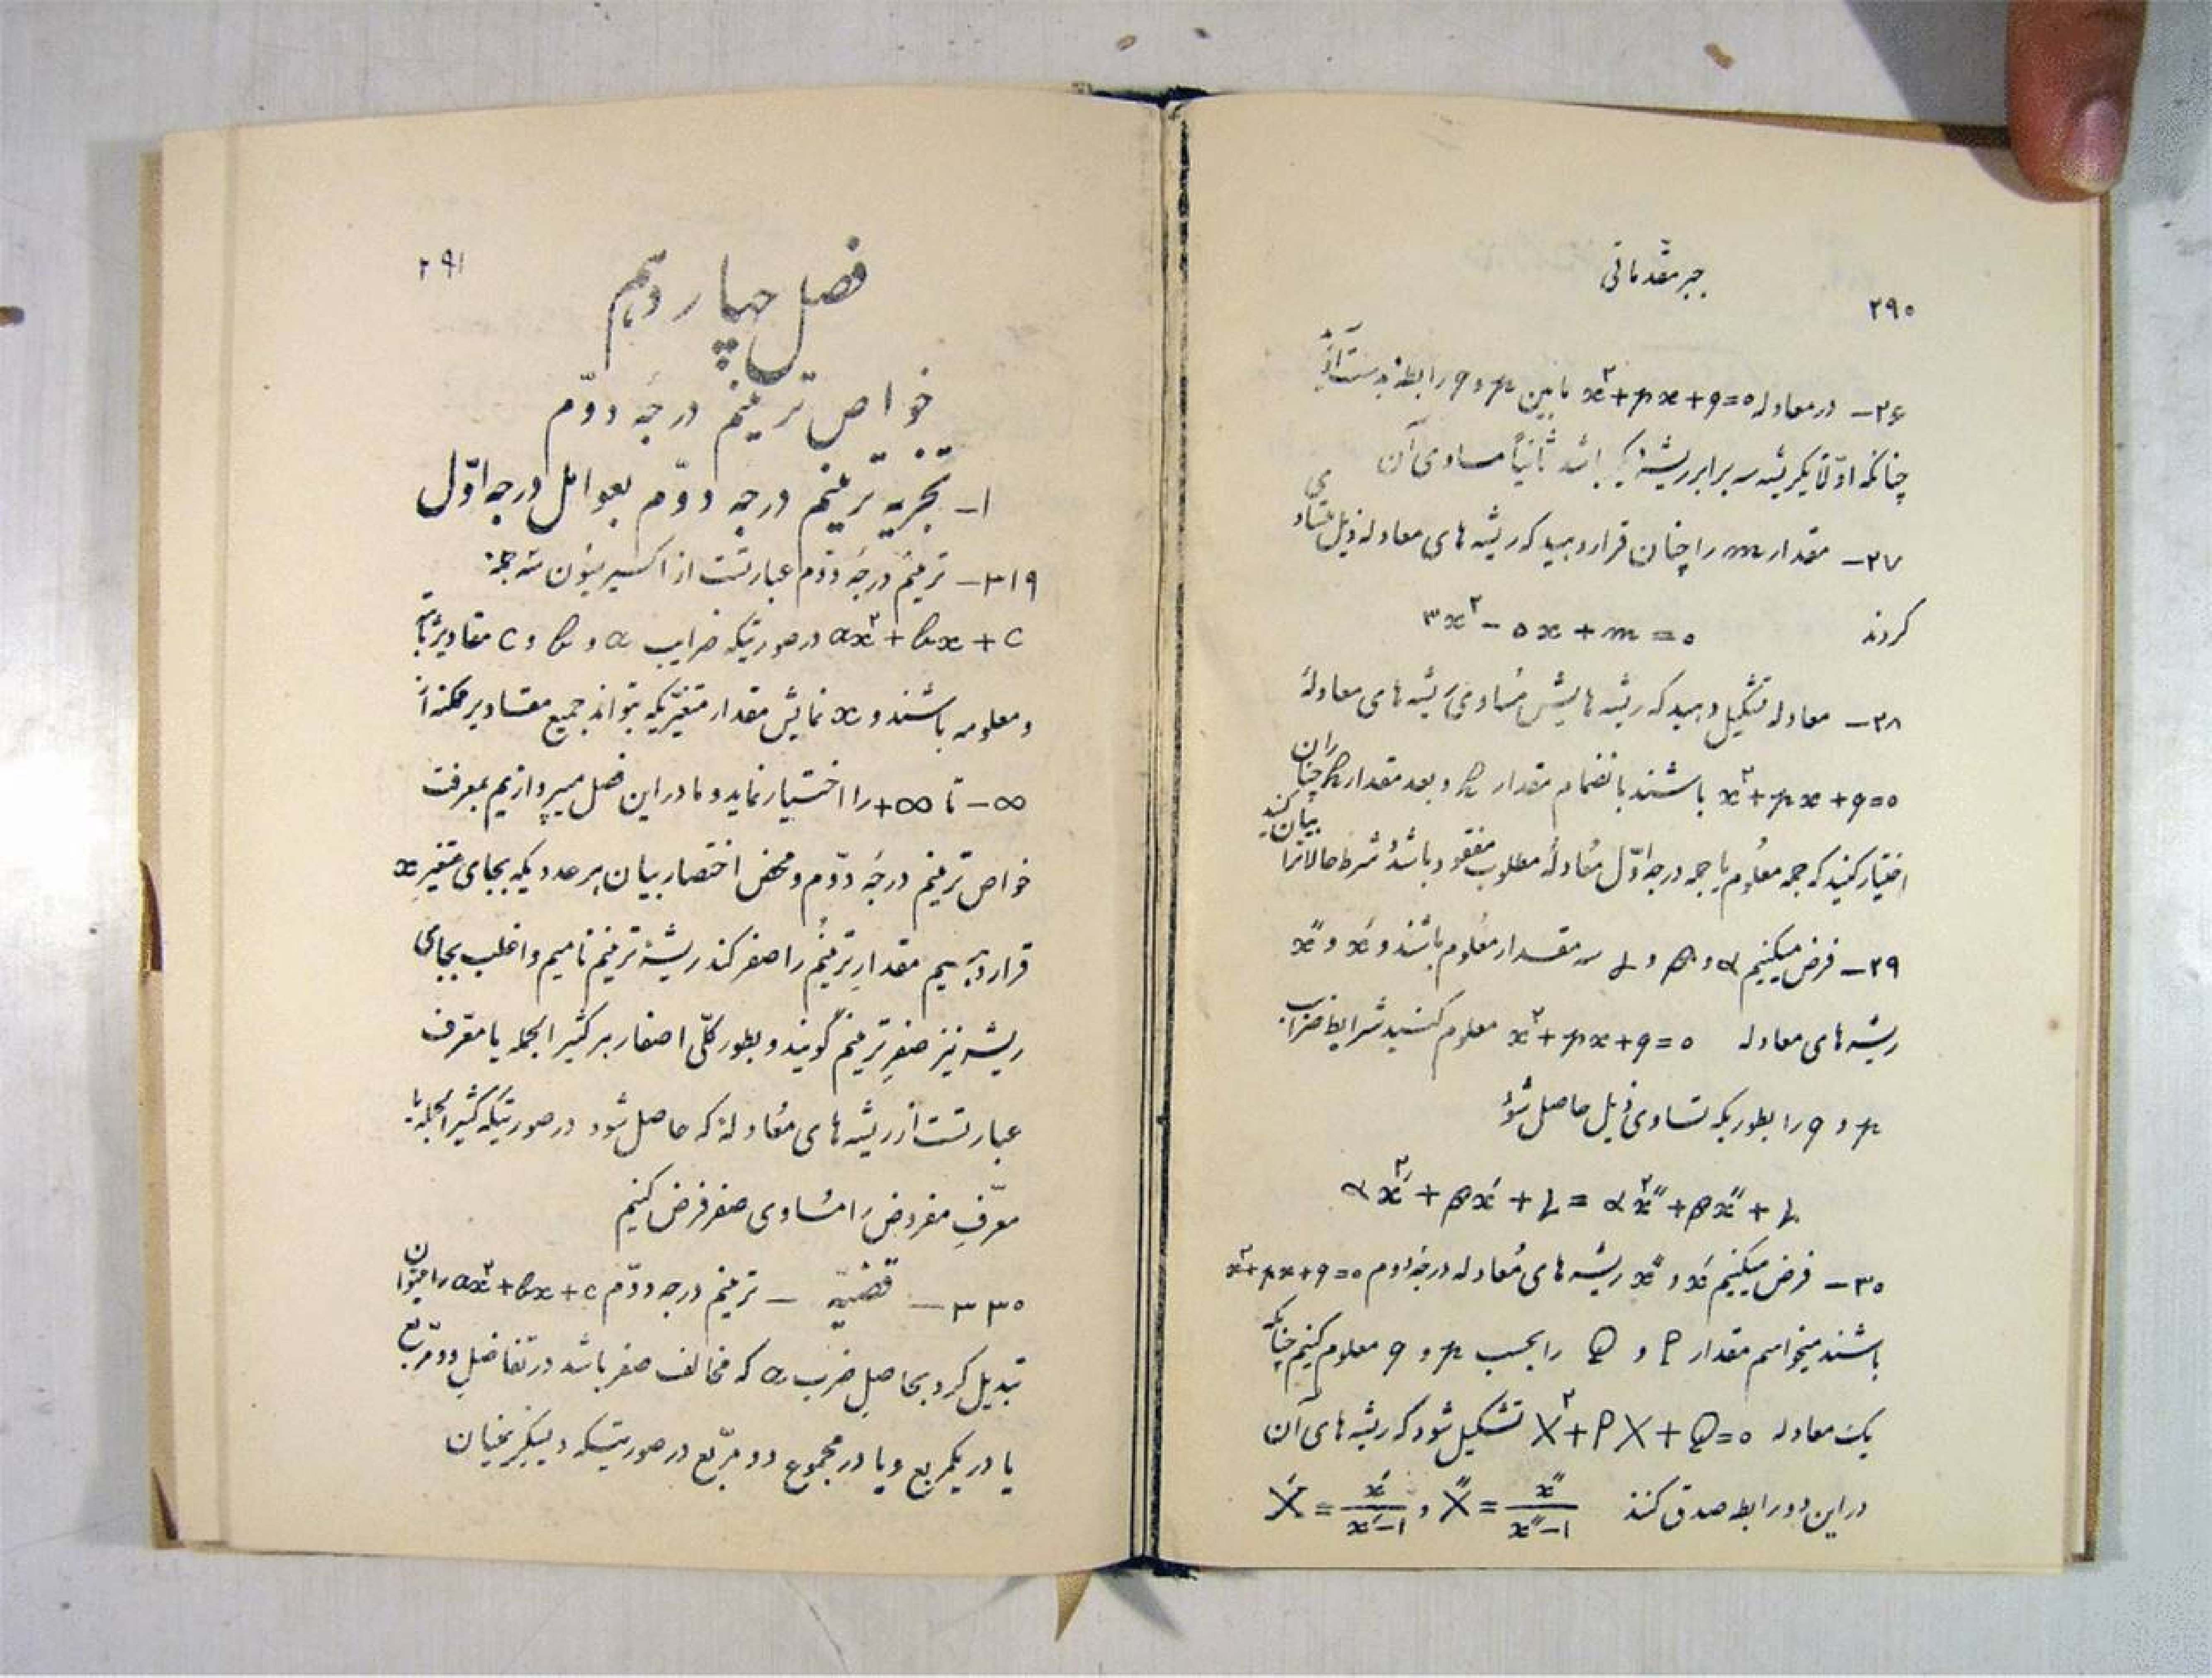 ۲۹۰
جبر مقدماتی
۲۶- در معادله x²+px+q=۰ مابین p و q رابطهٔ بدست آرید
چنانکه اوّلاً یکریشه سه برابر ریشهٔ دیگر باشد ثانیاً مساوی آن
۲۷- مقدار m را چنان قرار دهید که ریشه های معادله ذیل متساوی
گردند ۳x²-۵x+m=۰
۲۸- معادله تشکیل دهید که ریشه هایش مساوی ریشه های معادلهٔ
x²+px+q=۰ باشند بانضمام مقدار h و بعد مقدار h را چنان
اختیار کنید که جمله معلوم یا جمله درجه اوّل معادلهٔ مطلوب مفقود باشد شرط حالات را بیان کنید
۲۹- فرض میکنیم α و β و γ سه مقدار معلوم باشند و x′ و x″
ریشه های معادله x²+px+q=۰ معلوم کنید شرایط ضرایب
p و q را بطوریکه تساوی ذیل حاصل شود
αx′²+βx′+γ=αx″²+βx″+γ
۳۰- فرض میکنیم x′ و x″ ریشه های معادله درجه دوم x²+px+q=۰
باشند میخواهیم مقدار P و Q را بحسب p و q معلوم کنیم چنانکه
یک معادله X²+PX+Q=۰ تشکیل شود که ریشه های آن
در این دو رابطه صدق کنند X′=x′/(x′-۱) و X″=x″/(x″-۱)
۲۹۱
فصل چهاردهم
خواص ترینم درجه دوّم
۱- تجزیه ترینم درجه دوّم بعوامل درجه اوّل
۳۱۹- ترینم درجه دوّم عبارتست از اکسپرسیون سه جمله
ax²+bx+c در صورتیکه ضرایب a و b و c مقادیر ثابته
و معلومه باشند و x نمایش مقدار متغیّریکه بتواند جمیع مقادیر ممکنه از
-∞ تا +∞ را اختیار نماید و ما در این فصل میپردازیم بمعرفت
خواص ترینم درجه دوّم و محض اختصار بیان هر عددیکه بجای متغیر x
قرار دهیم مقدار ترینم را صفر کند ریشهٔ ترینم نامیم و اغلب بجای
ریشه نیز صفر ترینم گویند و بطور کلّی اصفار هر کثیر الجمله یا معرف
عبارتست از ریشه های معادلهٔ که حاصل شود در صورتیکه کثیر الجمله یا
معرّف مفروض را مساوی صفر فرض کنیم
۳۳۰- قضیّه - ترینم درجه دوّم ax²+bx+c را میتوان
تبدیل کرد بحاصل ضرب a که مخالف صفر باشد در تفاضل دو مربّع
یا در یکمربع و یا در مجموع دو مربّع در صورتیکه